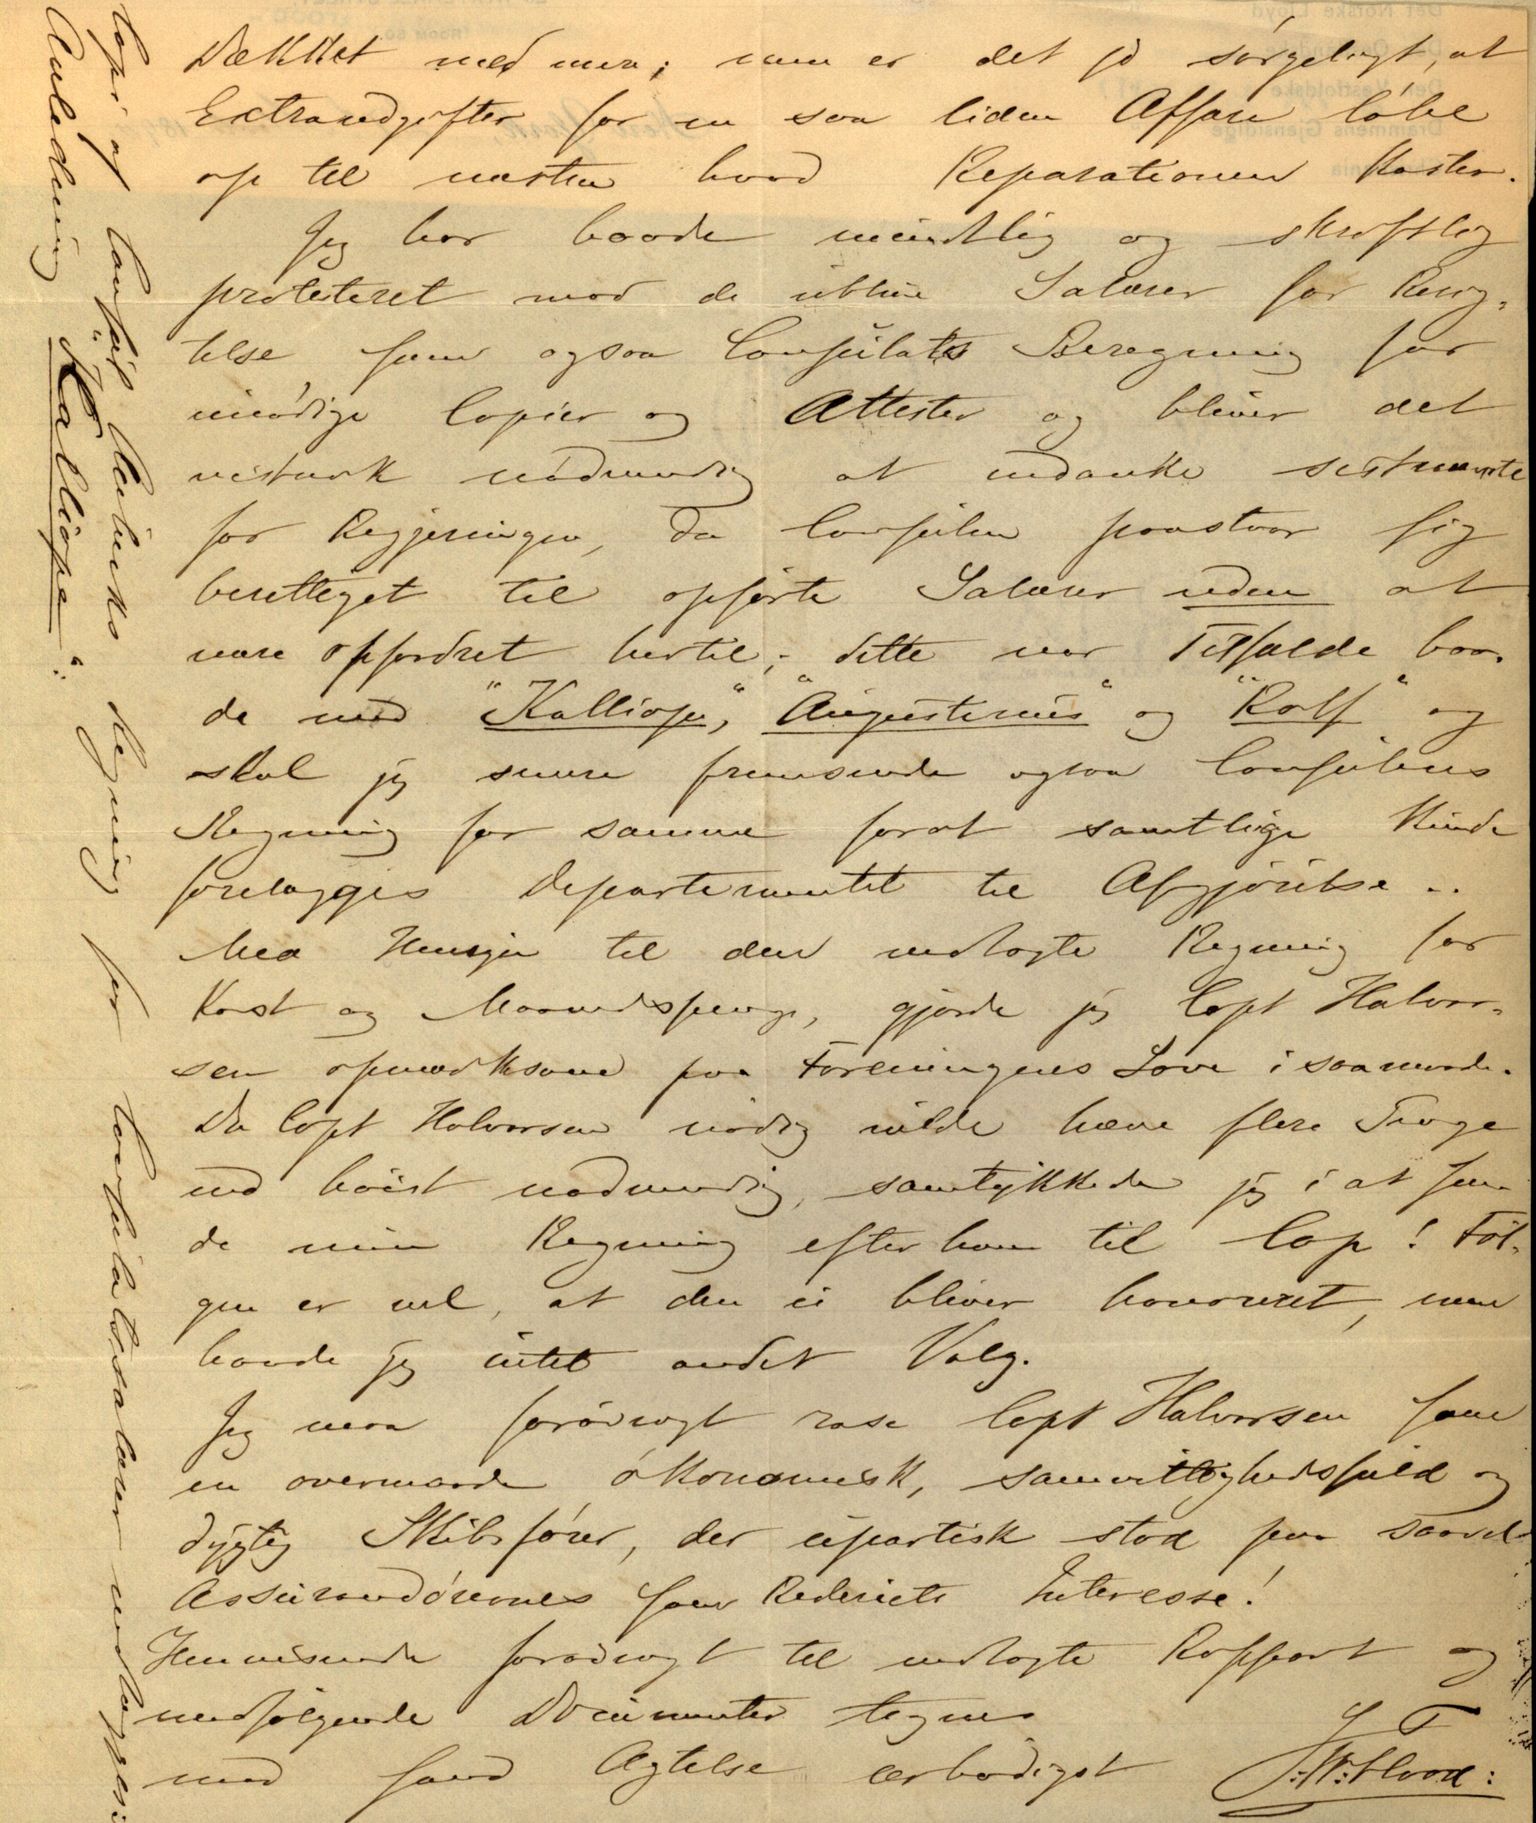 Dækket med mere; men er det jo sørgeligt, at
Extraudgifter for en saa liden Affære løbe
op til næsten hvad Reparationen koster.
Jeg har baade mundtlig og skriftlig
protesteret mod de ublue Salærer for
telse som ogsaa Consulats Beregning for
unødige Copier og Attester og bliver det
vistnok nødvendig at indanke sidstnævnte
for Regjeringen, da Consulen paastaar sig
berettiget til opførte Salærer uden at
være opfordret hertil; dette var Tilfælde baa-
de med "Kalliope", "Augustinus" og "Rolf" og
skal jeg senere fremsende ogsaa Consulens
Regning for samme forat samtlige kunde
forelægges Departementet til Afgjørelse..
Med Hensyn til den indlagte Regning for
Kost og Maanedspenge, gjorde jeg Capt Halvor-
sen opmærksom paa Foreningens Love i saa maade.
Da Capt Halvorsen nødig vilde hæve flere Penge
end høist nødvendig, samtykkede jeg i at sen-
de min Regning efter ham til Cap! Føl-
gen er vel, at den ei bliver honoreret, men
havde jeg intet andet Valg.
Jeg maa forøvrigt rose Capt Halvorsen som
en overmaade økonomisk, samvittighedsfuld og
dygtig Skibsfører, der upartisk stod paa saavel
Assurandørernes som Rederiets Interesse!
Henvisende forøvrigt til indlagte Rapport og
medfølgende Documenter tegnes
med sand Agtelse ærbødigst
Copi af Consul regning for Consulatssalærer vedlægges:
Anledning "Kalliope".